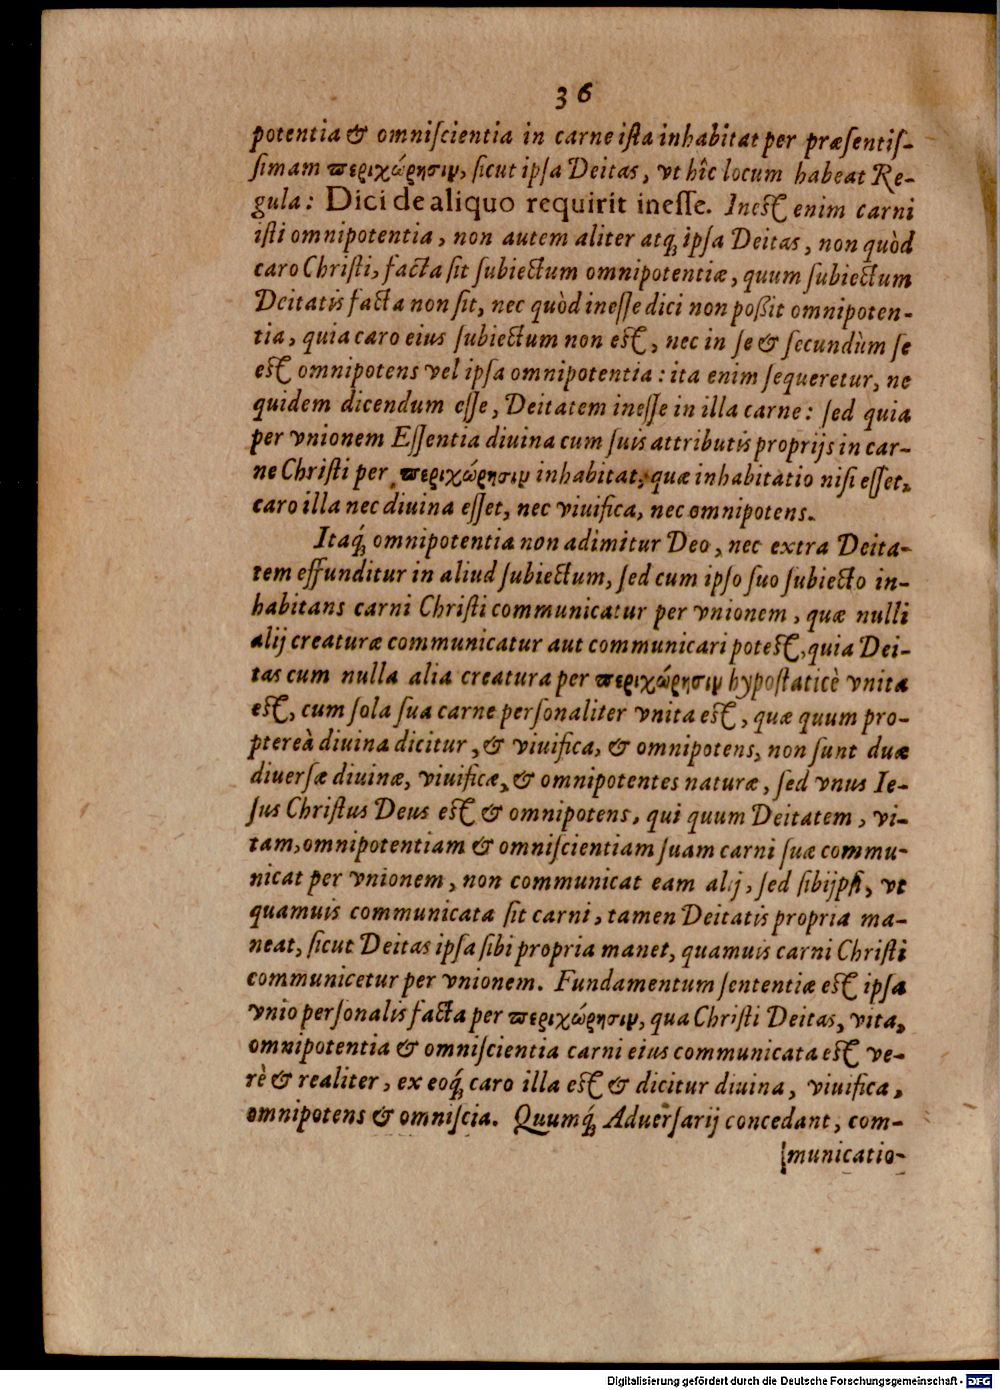 36
potentia & omniſcientia in carne iſta inhabitat per præſentiſ-
ſimam περιχώρησιν, ſicut ipſa Deitas, vt hîc locum habeat Re-
gula: Dici de aliquo requirit ineſſe. Ineſt enim carni
iſti omnipotentia, non autem aliter atq; ipſa Deitas, non quòd
caro Chriſti, facta ſit ſubiectum omnipotentiæ, quum ſubiectum
Deitatis facta non ſit, nec quòd ineſſe dici non poßit omnipoten-
tia, quia caro eius ſubiectum non eſt, nec in ſe & ſecundùm ſe
eſt omnipotens vel ipſa omnipotentia: ita enim ſequeretur, ne
quidem dicendum eſſe, Deitatem ineſſe in illa carne: ſed quia
per vnionem Eſſentia diuina cum ſuis attributis proprijs in car-
ne Chriſti per περιχώρησιν inhabitat, quæ inhabitatio niſi eſſet,
caro illa nec diuina eſſet, nec viuifica, nec omnipotens.
Itaq́; omnipotentia non adimitur Deo, nec extra Deita-
tem effunditur in aliud ſubiectum, ſed cum ipſo ſuo ſubiecto in-
habitans carni Chriſti communicatur per vnionem, quæ nulli
alij creaturæ communicatur aut communicari poteſt, quia Dei-
tas cum nulla alia creatura per περιχώρησιν hypoſtaticè vnita
eſt, cum ſola ſua carne perſonaliter vnita eſt, quæ quum pro-
ptereà diuina dicitur, & viuifica, & omnipotens, non ſunt duæ
diuerſæ diuinæ, viuificæ, & omnipotentes naturæ, ſed vnus Ie-
ſus Chriſtus Deus eſt & omnipotens, qui quum Deitatem, vi-
tam, omnipotentiam & omniſcientiam ſuam carni ſuæ commu-
nicat per vnionem, non communicat eam alij, ſed ſibijpſi, vt
quamuis communicata ſit carni, tamen Deitatis propria ma-
neat, ſicut Deitas ipſa ſibi propria manet, quamuis carni Chriſti
communicetur per vnionem. Fundamentum ſententiæ eſt ipſa
vnio perſonalis facta per περιχώρησιν, qua Chriſti Deitas, vita,
omnipotentia & omniſcientia carni eius communicata eſt ve-
rè & realiter, ex eoq́; caro illa eſt & dicitur diuina, viuifica,
omnipotens & omniſcia. Quumq́; Aduerſarij concedant, com-
municatio-
Digitalisierung gefördert durch die Deutsche Forschungsgemeinschaft - DFG